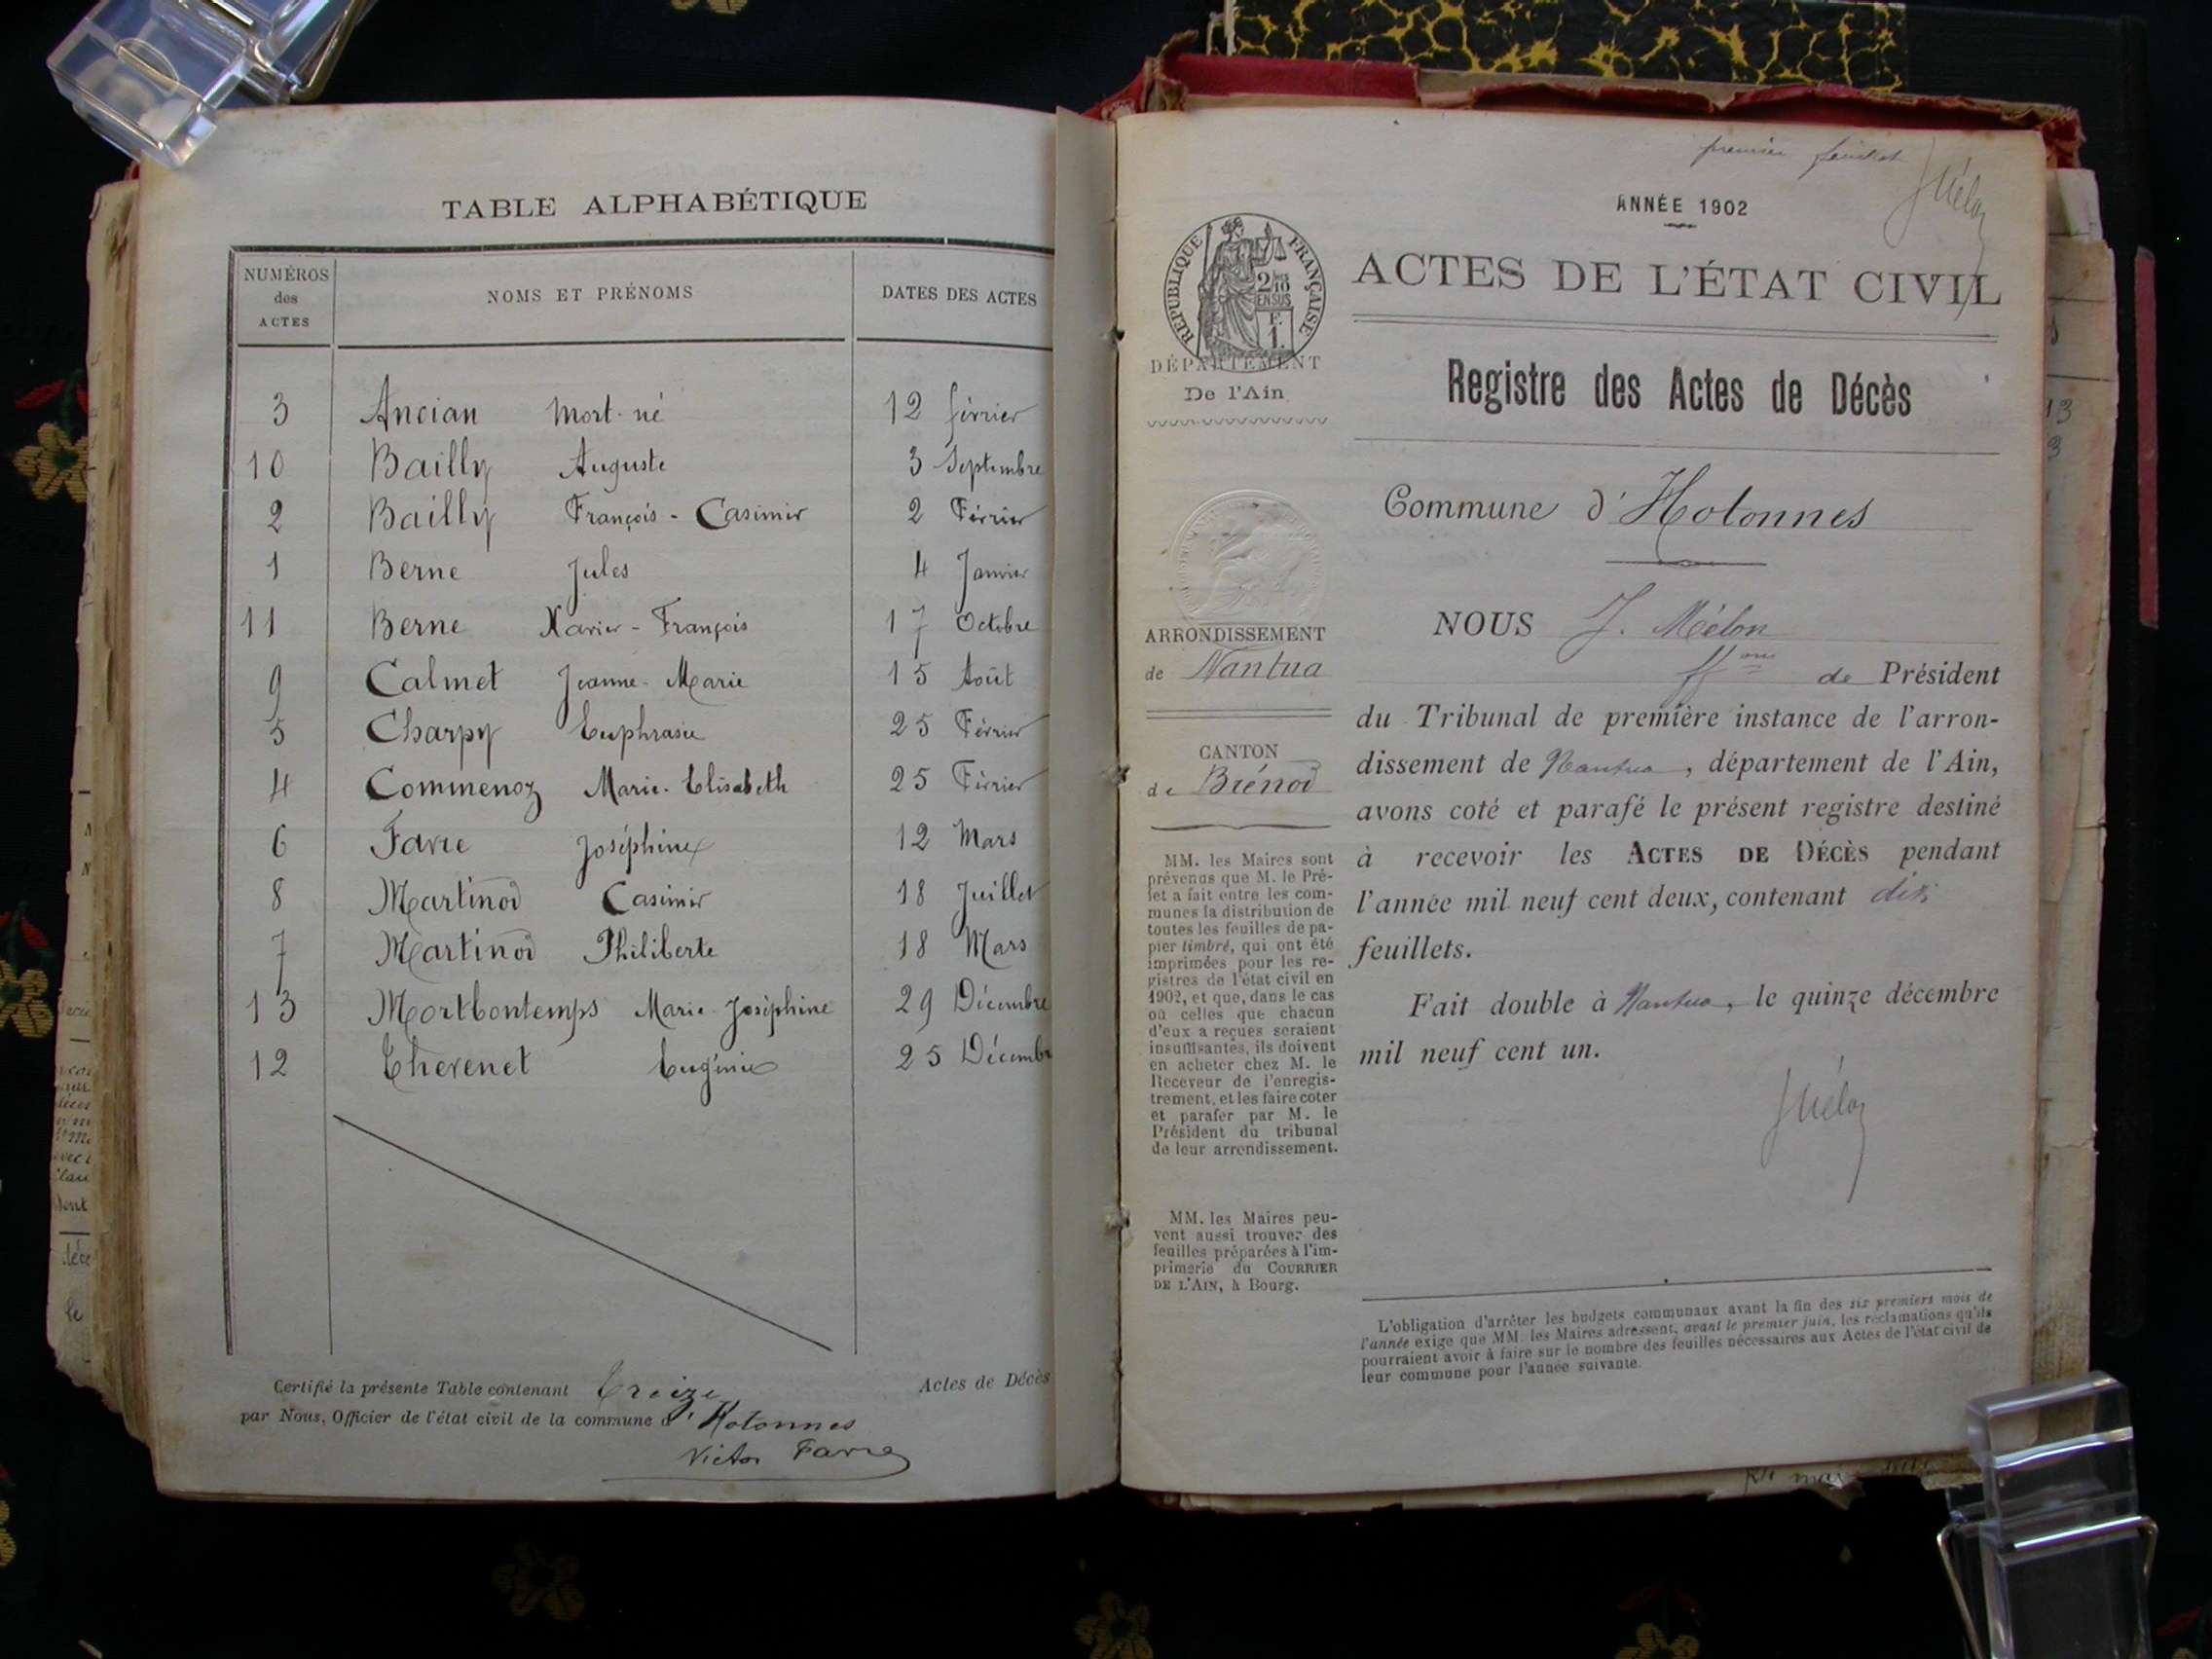 TABLE ALPHABÉTIQUE
NUMÉROS des ACTES NOMS ET PRÉNOMS DATES DES ACTES
3 Ancian Mort-né 12 février
10 Bailly Auguste 3 Septembre
2 Bailly François-Casimir 2 Février
1 Berne Jules 4 Janvier
11 Berne Xavier-François 17 Octobre
9 Calmet Jeanne-Marie 15 Août
5 Charpy Euphrasie 25 Février
4 Commenoz Marie-Elisabeth 25 Février
6 Favre Joséphine 12 Mars
8 Martinod Casimir 18 Juillet
7 Martinod Philiberte 18 Mars
13 Mortbontemps Marie-Joséphine 29 Décembre
12 Thevenet Eugénie 25 Décemb
Certifié la présente Table contenant treize Actes de Décès
par Nous, Officier de l'état civil de la commune d'Hotonnes
Victor Favre
premier feuillet
ANNÉE 1902
RÉPUBLIQUE FRANÇAISE
2/10
EN SUS
F.
1.
ACTES DE L'ÉTAT CIVIL
DÉPARTEMENT
De l'Ain
Registre des Actes de Décès
Commune d'Hotonnes
ARRONDISSEMENT
de Nantua
CANTON
de Brénod
MM. les Maires sont
prévenus que M. le Pré-
fet a fait entre les com-
munes la distribution de
toutes les feuilles de pa-
pier timbré, qui ont été
imprimées pour les re-
gistres de l'état civil en
1902, et que, dans le cas
où celles que chacun
d'eux a reçues seraient
insuffisantes, ils doivent
en acheter chez M. le
Receveur de l'enregis-
trement, et les faire coter
et parafer par M. le
Président du tribunal
de leur arrondissement.
MM. les Maires peu-
vent aussi trouver des
feuilles préparées à l'im-
primerie du COURRIER
DE L'AIN, à Bourg.
NOUS J. Mélon
ffons de Président
du Tribunal de première instance de l'arron-
dissement de Nantua, département de l'Ain,
avons coté et parafé le présent registre destiné
à recevoir les ACTES DE DÉCÈS pendant
l'année mil neuf cent deux, contenant dix
feuillets.
Fait double à Nantua, le quinze décembre
mil neuf cent un.
JMélon
L'obligation d'arrêter les budgets communaux avant la fin des six premiers mois de
l'année exige que MM. les Maires adressent, avant le premier juin, les réclamations qu'ils
pourraient avoir à faire sur le nombre des feuilles nécessaires aux Actes de l'état civil de
leur commune pour l'année suivante.